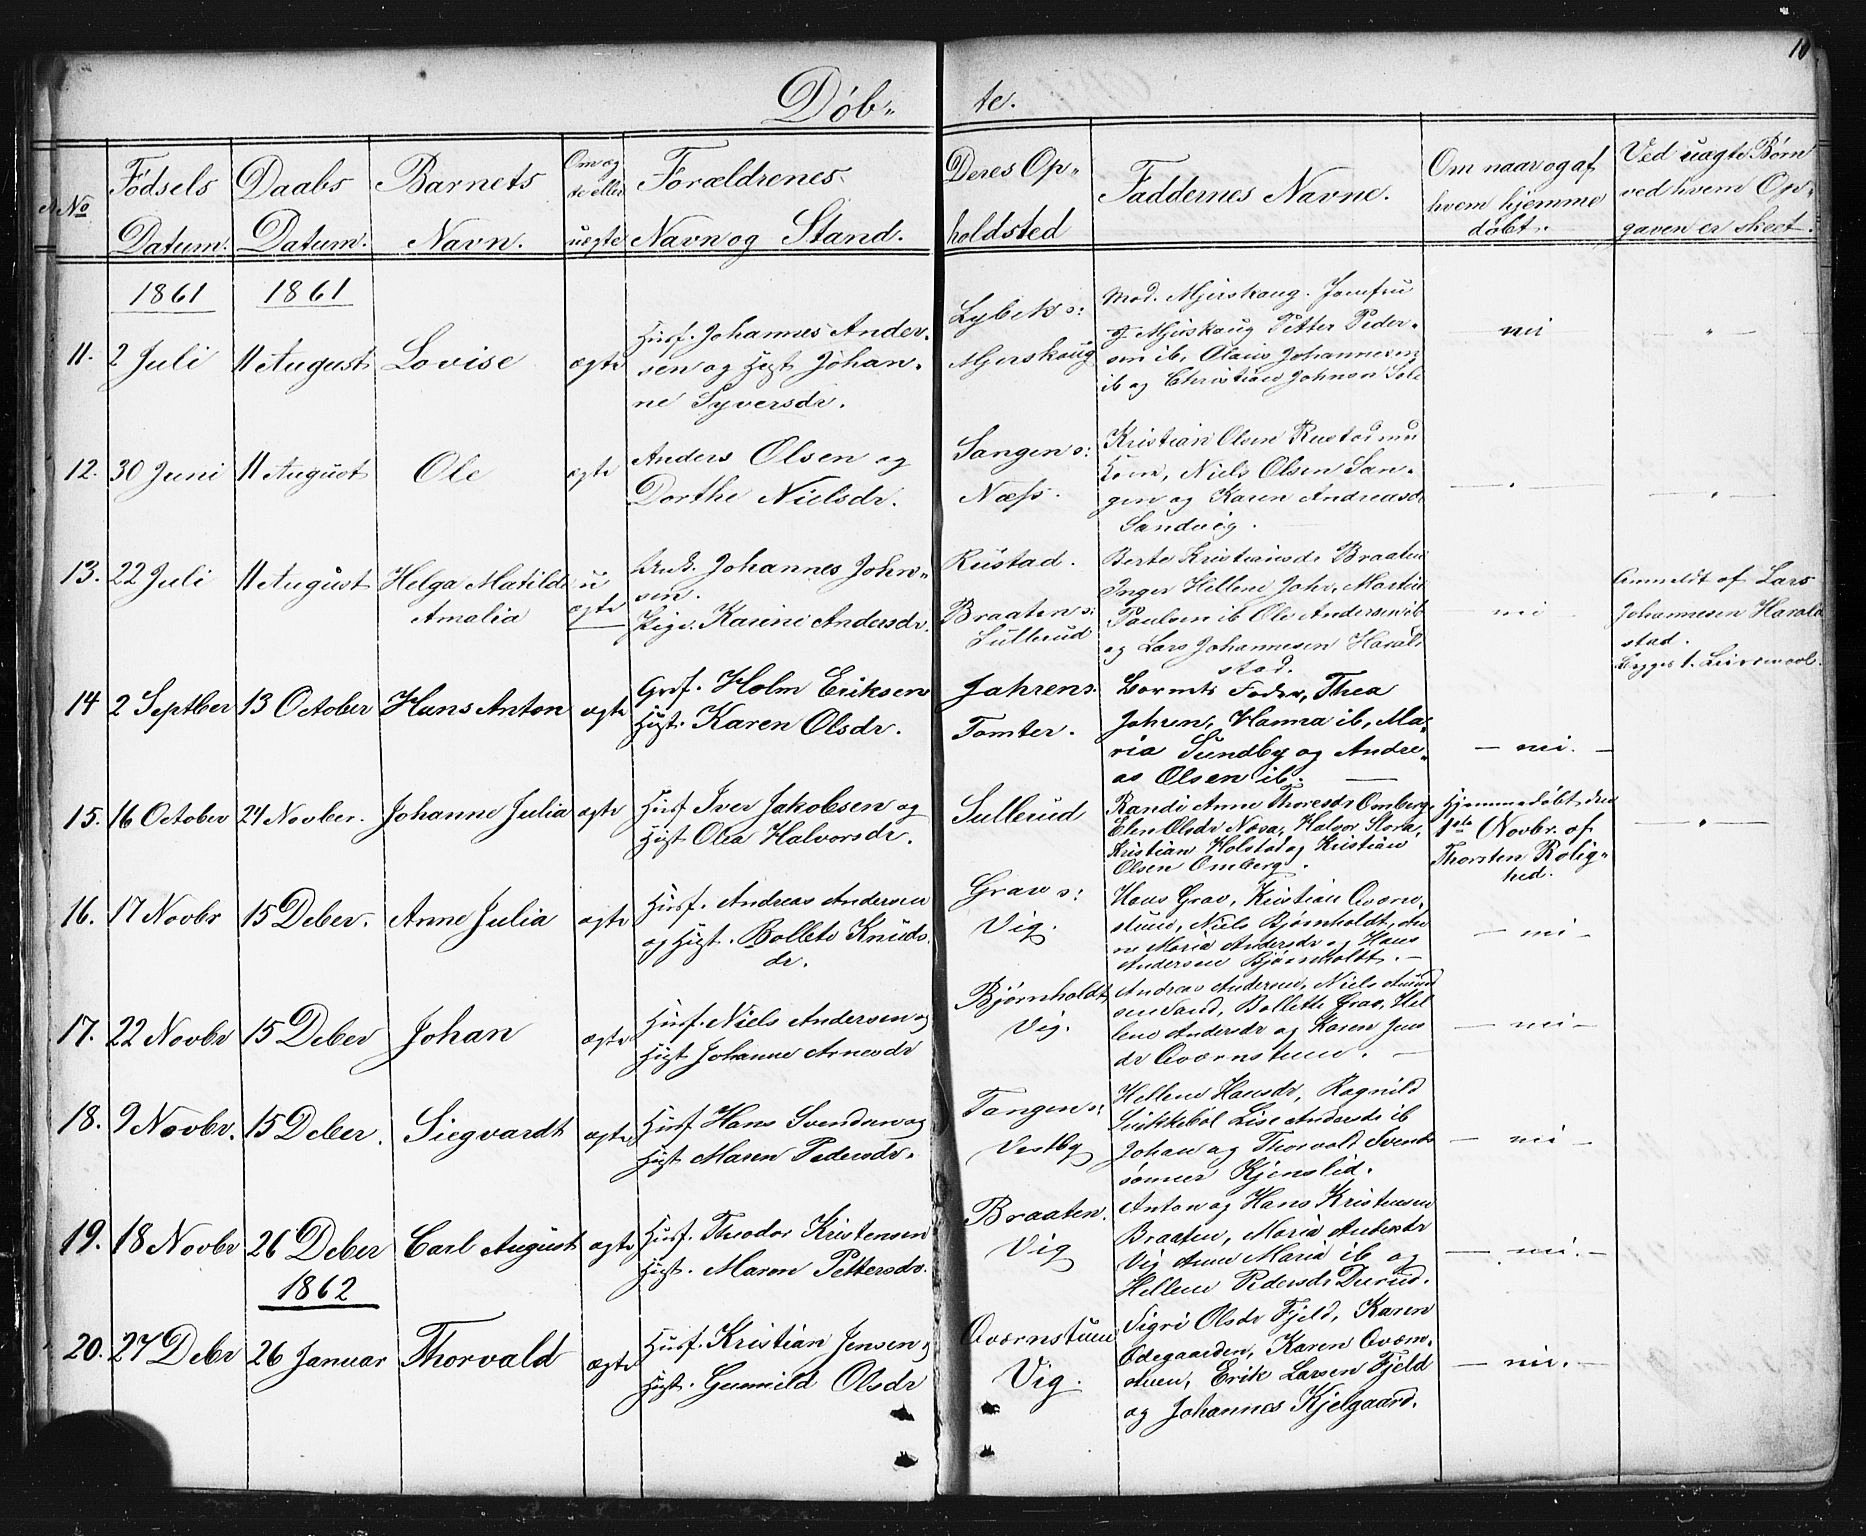 10
Döb„ te.
No
Födsels Datum.
Daabs Datum.
Barnets Navn.
Om ægte eller uægte
Forældrenes Navn og Stand.
Deres Opholdsted
Faddernes Navne.
Om naar og af hvem hjemme döbt.
Ved uægte Börn ved hvem Opgaven er skeet.
1861 1861
11. 2 Juli 11 August Lovise ægte
Husf. Johannes Ander-
sen og Hgst Johan-
ne Syversdr.
Lybek s:
Mjerskoug
Mad. Mjerskoug. Jomfru
Mjerskoug Petter Peder-
sen ib, Olaus Johannesen
ib og Christian Johnsen
nei
12. 30 Juni 11 August Ole ægte
Anders Olsen og
Dorthe Nielsdr.
Sangen s:
Næss.
Kristian Olsen Rustad
Niels Olsen San-
gen og Karen Andreasdr
Sandvig.
13. 22 Juli 11 August Helga Matilde
Amalia
u
ægte
Johannes John-
sen.
Pige. Karine Andersdr.
Rustad.
Braaten s:
Sullerud
Berte Kristiansdr Braaten
Inger Hellene Johr, Martin
Paulsen ib Ole Andersen ib
og Lars Johannesen Harald
stad.
nei
Anmeldt af Lars
Johannesen Harald
stad.
14 2 Septber 13 October Hans Anton ægte
Grf. Holm Eriksen
Hgst. Karen Olsdr.
Jahren s.
Tomter.
Barnets Fader, Thea
Jahren, Hanna ib, Ma-
ria Sundby og Andre-
as Olsen ib.
— nei. —
15. 16 October 24 Novber. Johanne Julia ægte
Husf Iver Jakobsen og
Hgst Olea Halvorsdr.
Sullerud
Randi Anne Thoresdr Omberg
Elen Olsdr Næsa, Halvor Stora,
Kristian Holstad og Kristian
Olsen Omberg.
Hjemmedöbt den
1ste Novbr. af
Thorsten Rolig-
hed.
16. 17 Novbr 15 Deber. Anne Julia ægte
Husf. Andreas Andersen
og Hgst. Bollete Knuds
dr.
Grav s:
Vig.
Hans Grav, Kristian Qværn-
stuen, Niels Björnholdt, An-
ne Maria Andersdr og Hans
Andersen Björnholdt. —
— nei —
17. 22 Novbr 15 Deber Johan ægte
Husf. Niels Andersen og
Hgst Johanne Arnesdr
Björnholdt
Vig.
Andreas Andersen, Niels
Bollette Grav, Hel
lene Andersdr og Karen Jens
dr Qværnstuen. —
— nei —
18. 9 Novbr. 15 Deber. Siegvardt ægte
Husf Hans Svendsen og
Hgst Maren Pedersdr.
Tangen s:
Vestby
Hellene Hansdr, Ragnild
Sikkeböl Lise Andersdr ib
Johan og Thorvald Svends
sönner Kjenslid.
— nei —
19. 18 Novbr 26 Deber Carl August ægte
Husf. Theodor Kristensen
Hgst. Maren Pettersdr.
Braaten.
Vig
Anton og Hans Kristensen
Braaten, Maria Andersdr
Vig Anne Maria ib og
Hellene Pedersdr Durud.
— nei. —
1862
20. 27 Debr 26 Januar Thorvald ægte
Husf. Kristian Jensen og
Hgst. Gunnild Olsdr
Qværnstuen
Vig.
Sigri Olsdr Fjeld, Karen
Ödegaarden, Karen Qværn-
stuen, Erik Larsen Fjeld
og Johannes Kjelgaard.
— nei. —